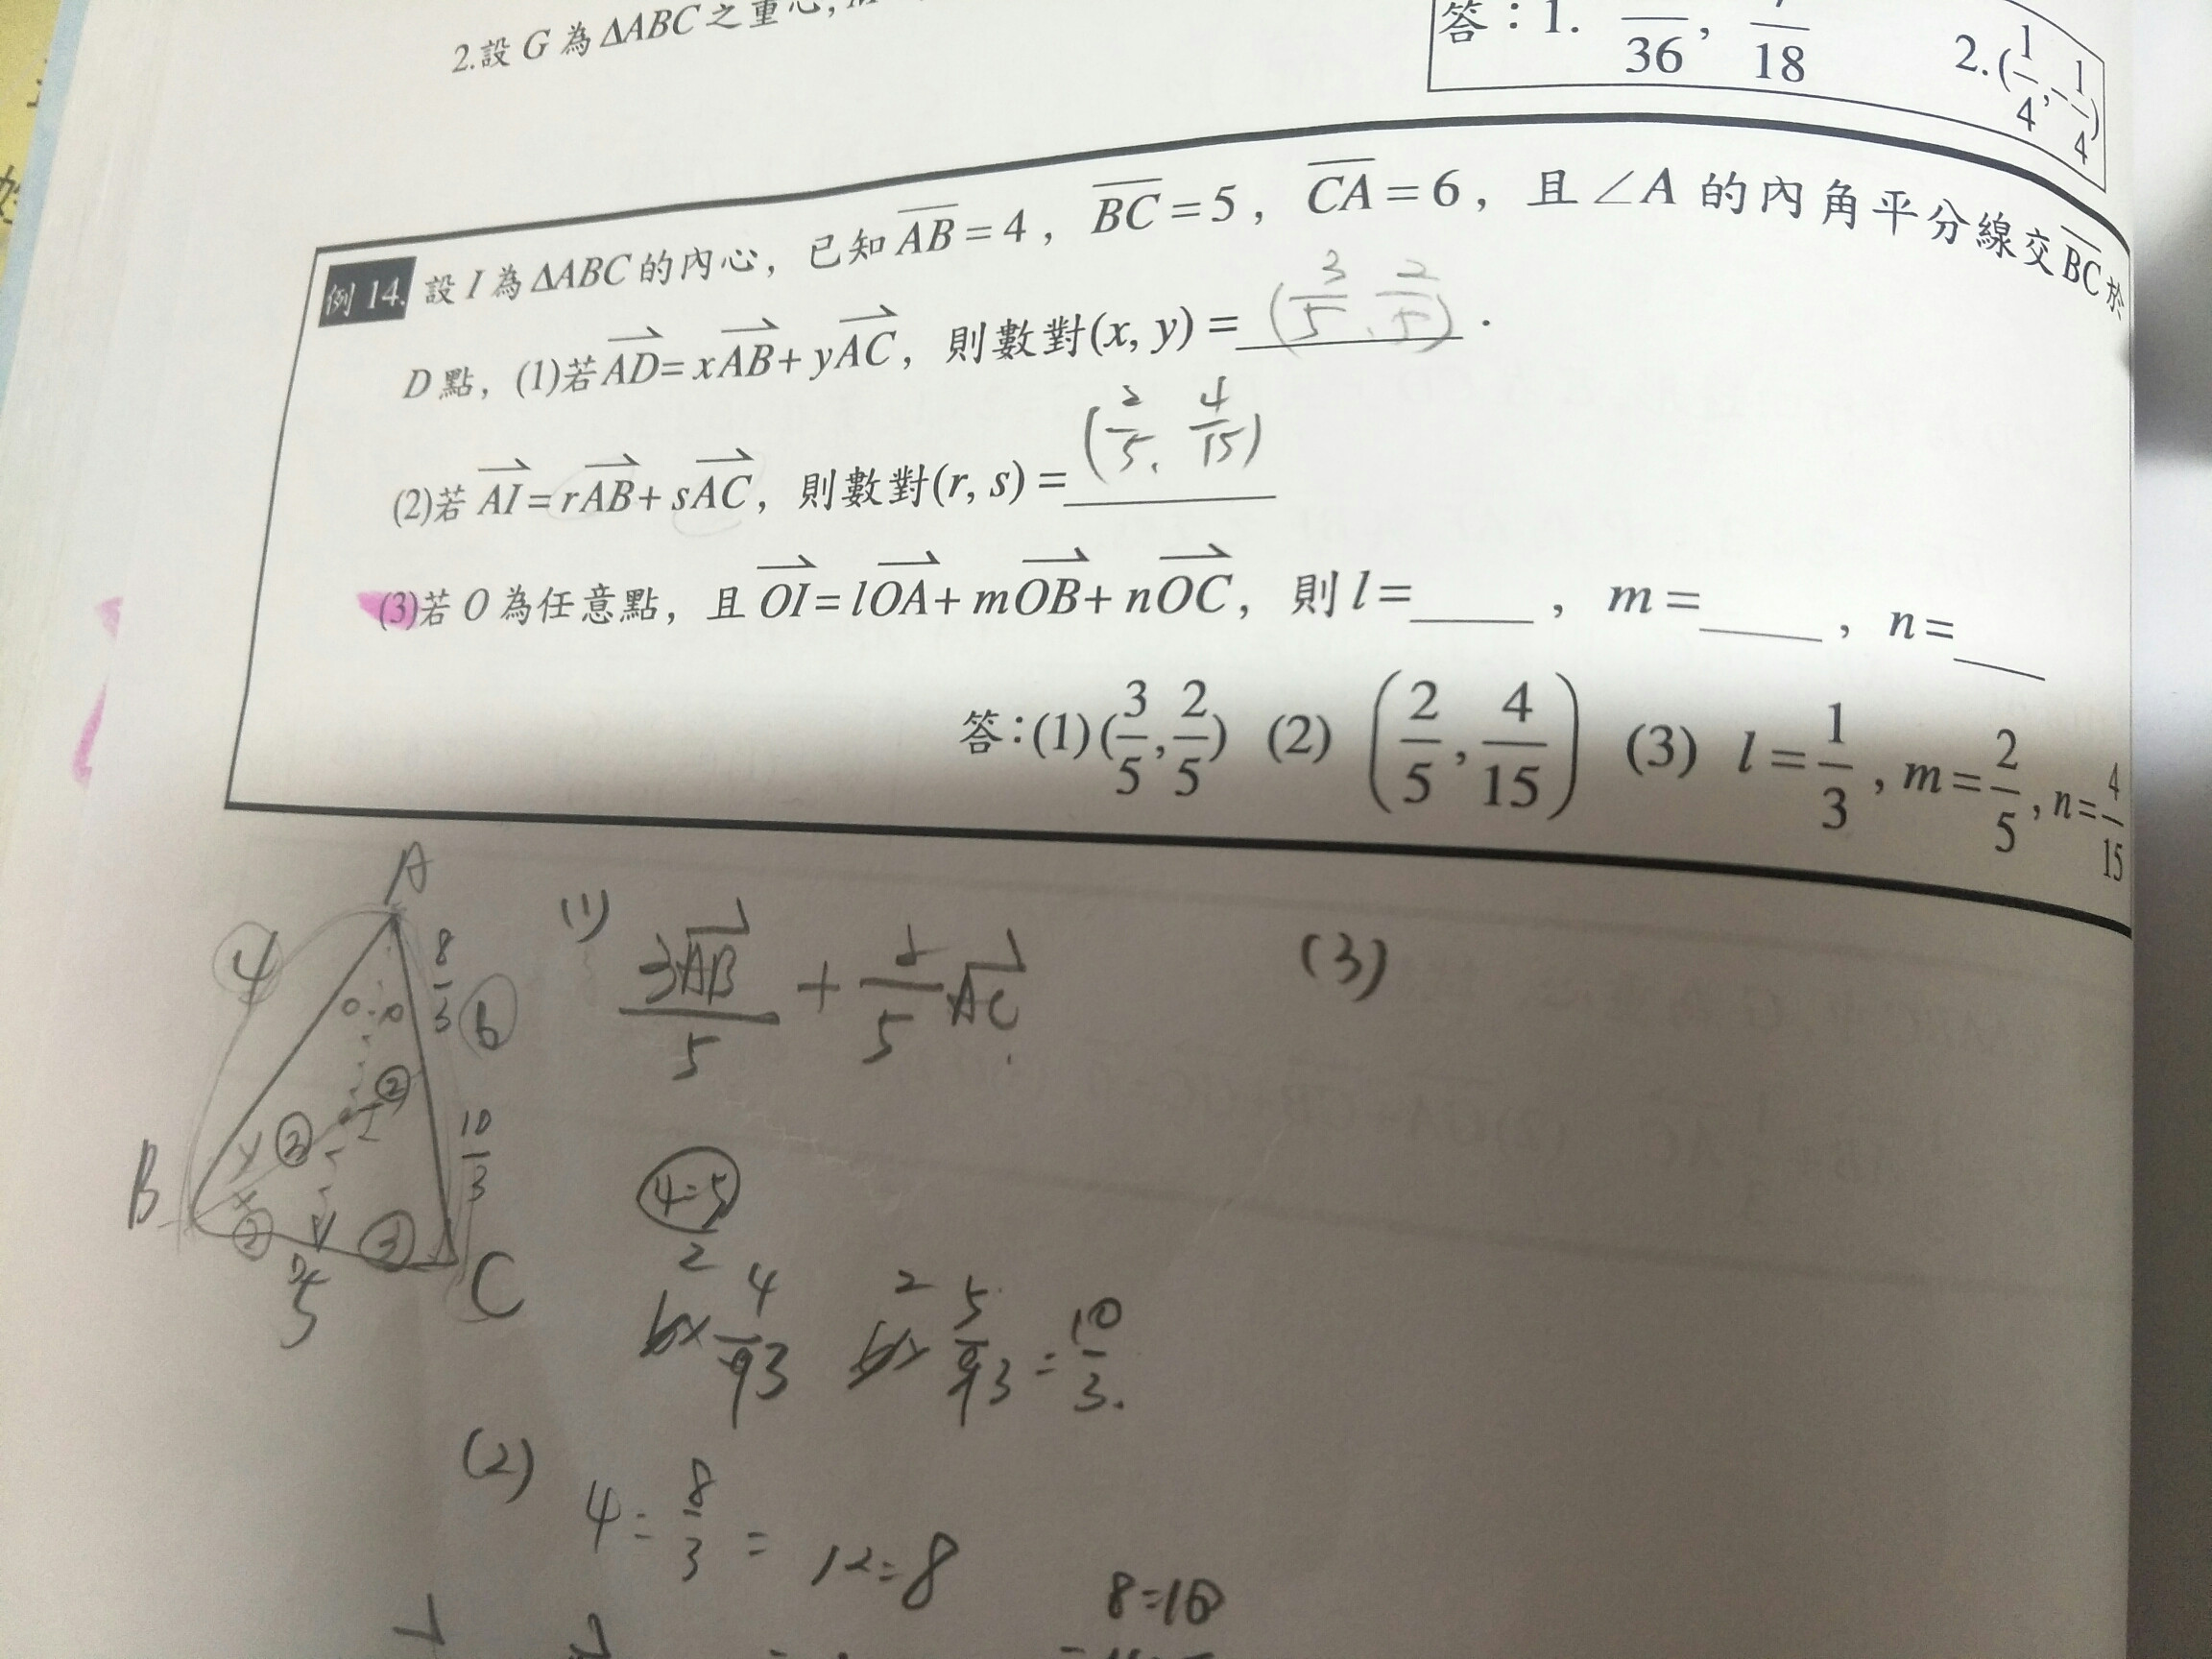 2.設 G 為 ΔABC 之重心,
答：1. /36, 7/18 2.(1/4, -1/4)
例 14. 設 I 為 ΔABC 的內心，已知 AB = 4，BC = 5，CA = 6，且 ∠A 的內角平分線交 BC 於
D 點，(1)若 AD = xAB + yAC，則數對(x, y) = (3/5, 2/5).
(2)若 AI = rAB + sAC，則數對(r, s) = (2/5, 4/15)
(3)若 O 為任意點，且 OI = lOA + mOB + nOC，則 l = ____，m = ____，n = ____
答：(1)(3/5, 2/5) (2) (2/5, 4/15) (3) l = 1/3, m = 2/5, n = 4/15
A
4 8/3 6
10/3
B ② 5 ③ C
(1) 3AB/5 + 2/5 AC
(3)
4:5
6× 4/9 3 6× 5/9 3 = 10/3.
(2)
4 : 8/3 = 12:8
8:10